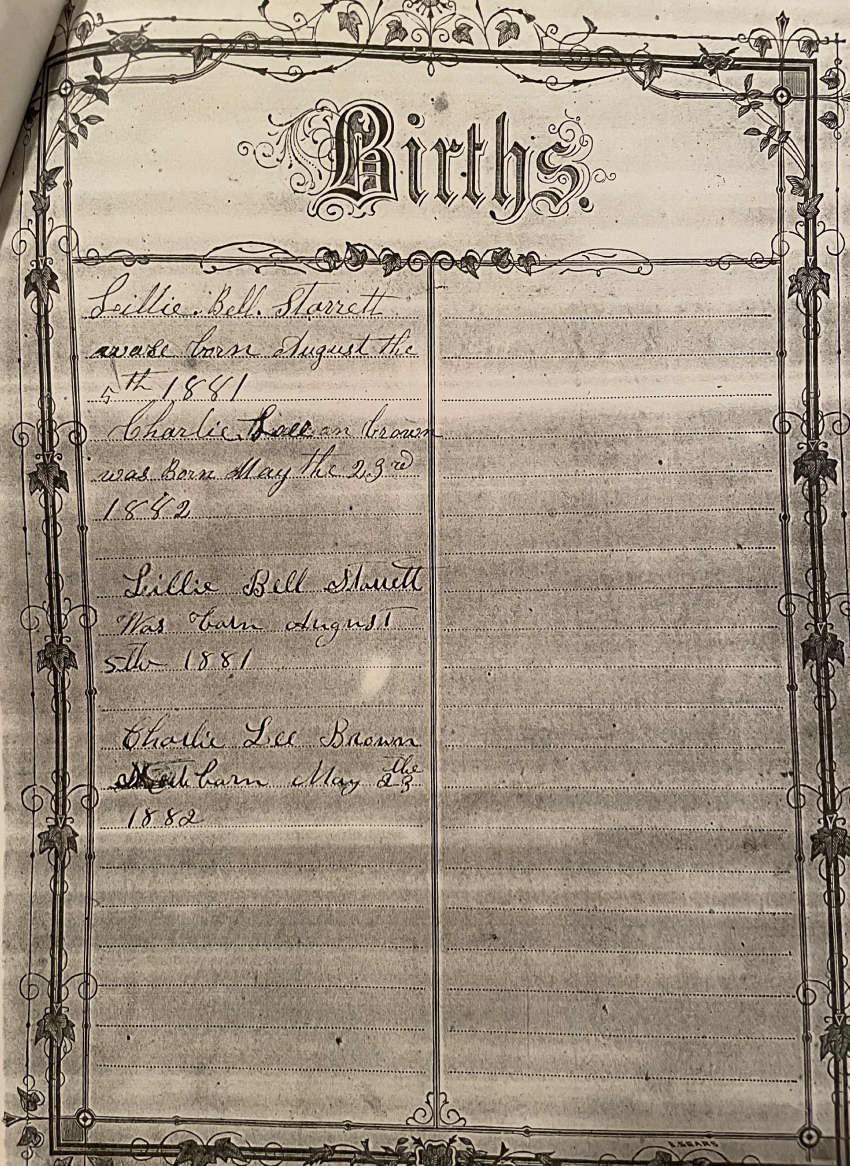 Births.
Lillie. Bell. Starrett
wase born August the
5th 1881
Charlie. on brown
was Born May the 23rd
1882
Lillie Bell Starrett
Was born August
5th 1881
Charlie Lee Brown
born May the 23
1882